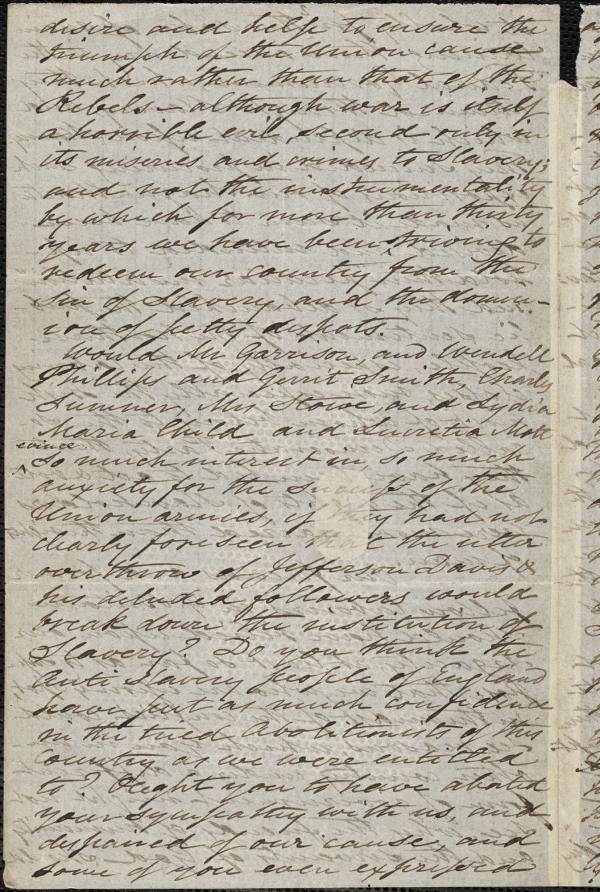 desire and help to ensure the
triumph of the Union cause
much rather than that of the
Rebels – although war is itself
a horrible evil, second only in
its miseries and crimes to Slavery;
and not the instrumentality
by which for more than thirty
years we have been striving to
redeem our country from the
sin of Slavery, and the domin-
ion of petty despots.
Would Mr Garrison, and Wendell
Phillips and Gerrit Smith, Charles
Sumner, Mrs Stowe, and Lydia
Maria Child and Lucretia Mott
evince
^ so much interest in, so much
anxiety for the success of the
Union armies, if they had not
clearly foreseen that the utter
overthrow of Jefferson Davis &
his deluded followers would
break down the institution of
Slavery? Do you think the
Anti Slavery people of England
have put as much confidence
in the tried Abolitionists of this
Country as we were entitled
to? Ought you to have abated
your sympathy with us, and
despaired of our cause, and
some of you even expressed